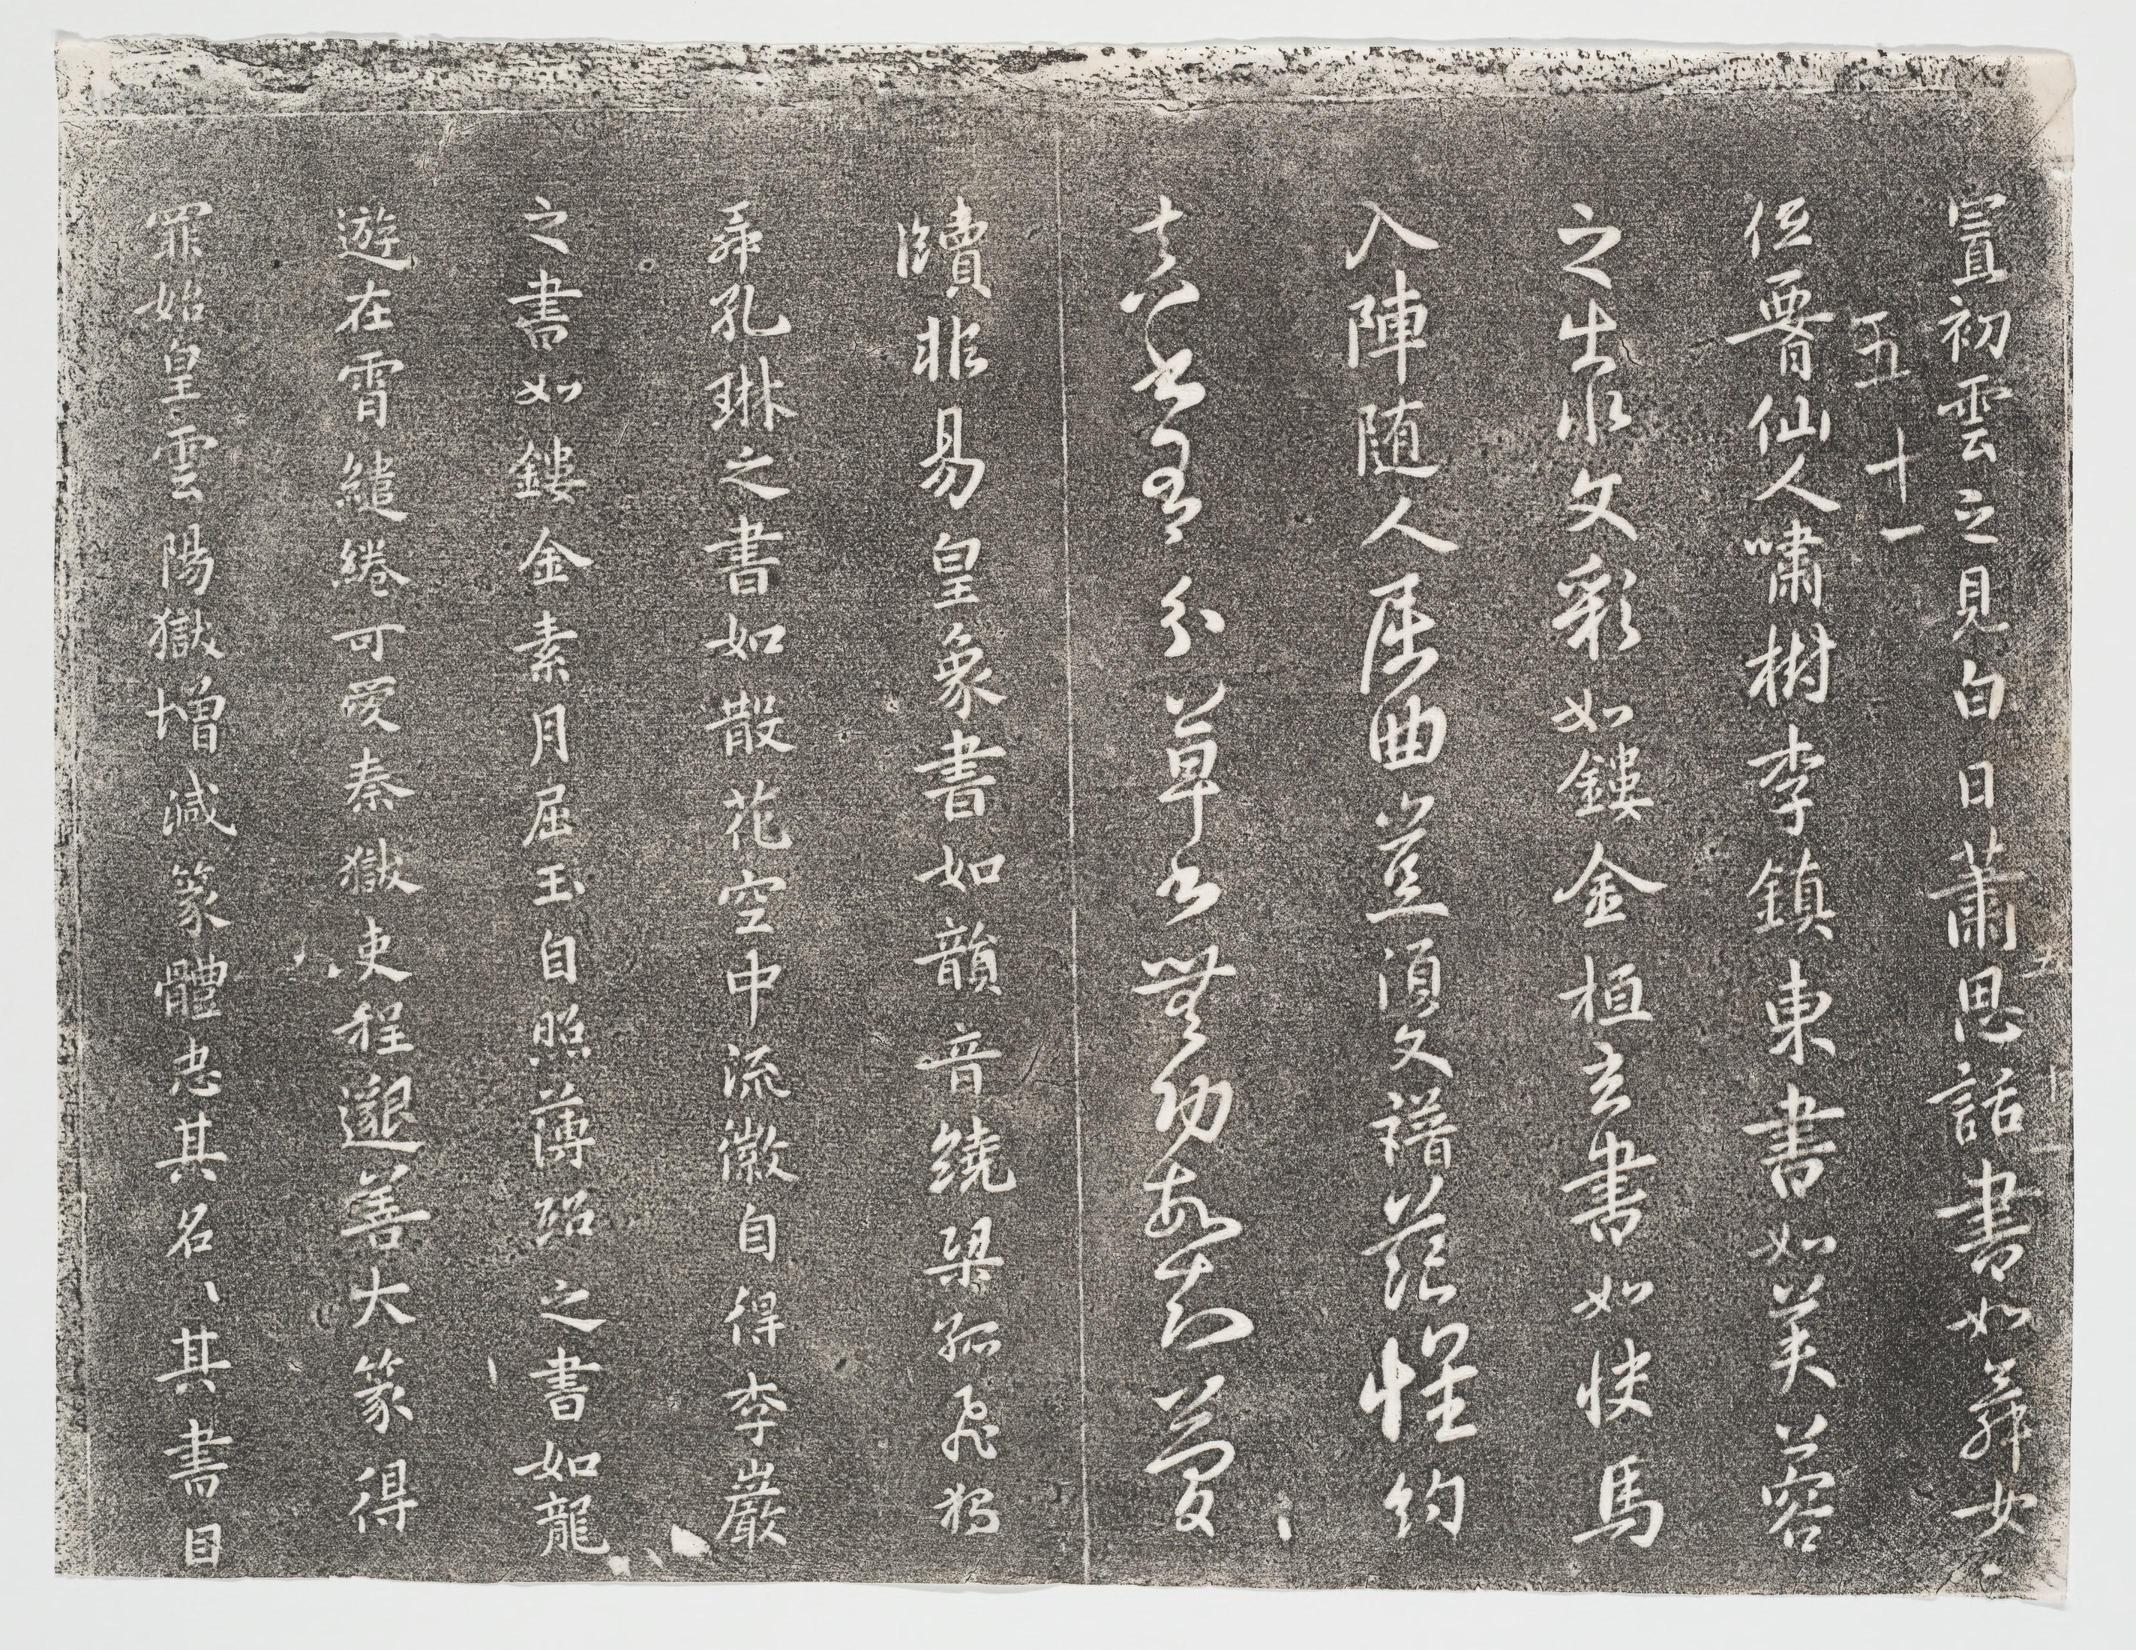 寳初雲之見白日蕭思話書如舞女
五十一
低腰仙人嘯樹李鎮東書如芙蓉
之出水文彩如鏤金桓玄書如快馬
入陣随人屈曲豈須文譜范懌約
真書有分草書無功故知簡
牘非易皇象書如韻音繞梁孤飛獨
舞孔琳之書如散花空中流徽自得李巖
之書如鏤金素月屈玉自照薄紹之書如龍
遊在霄繾綣可愛秦獄吏程邈善大篆得
罪始皇雲陽獄增减篆體忠其名、其書目